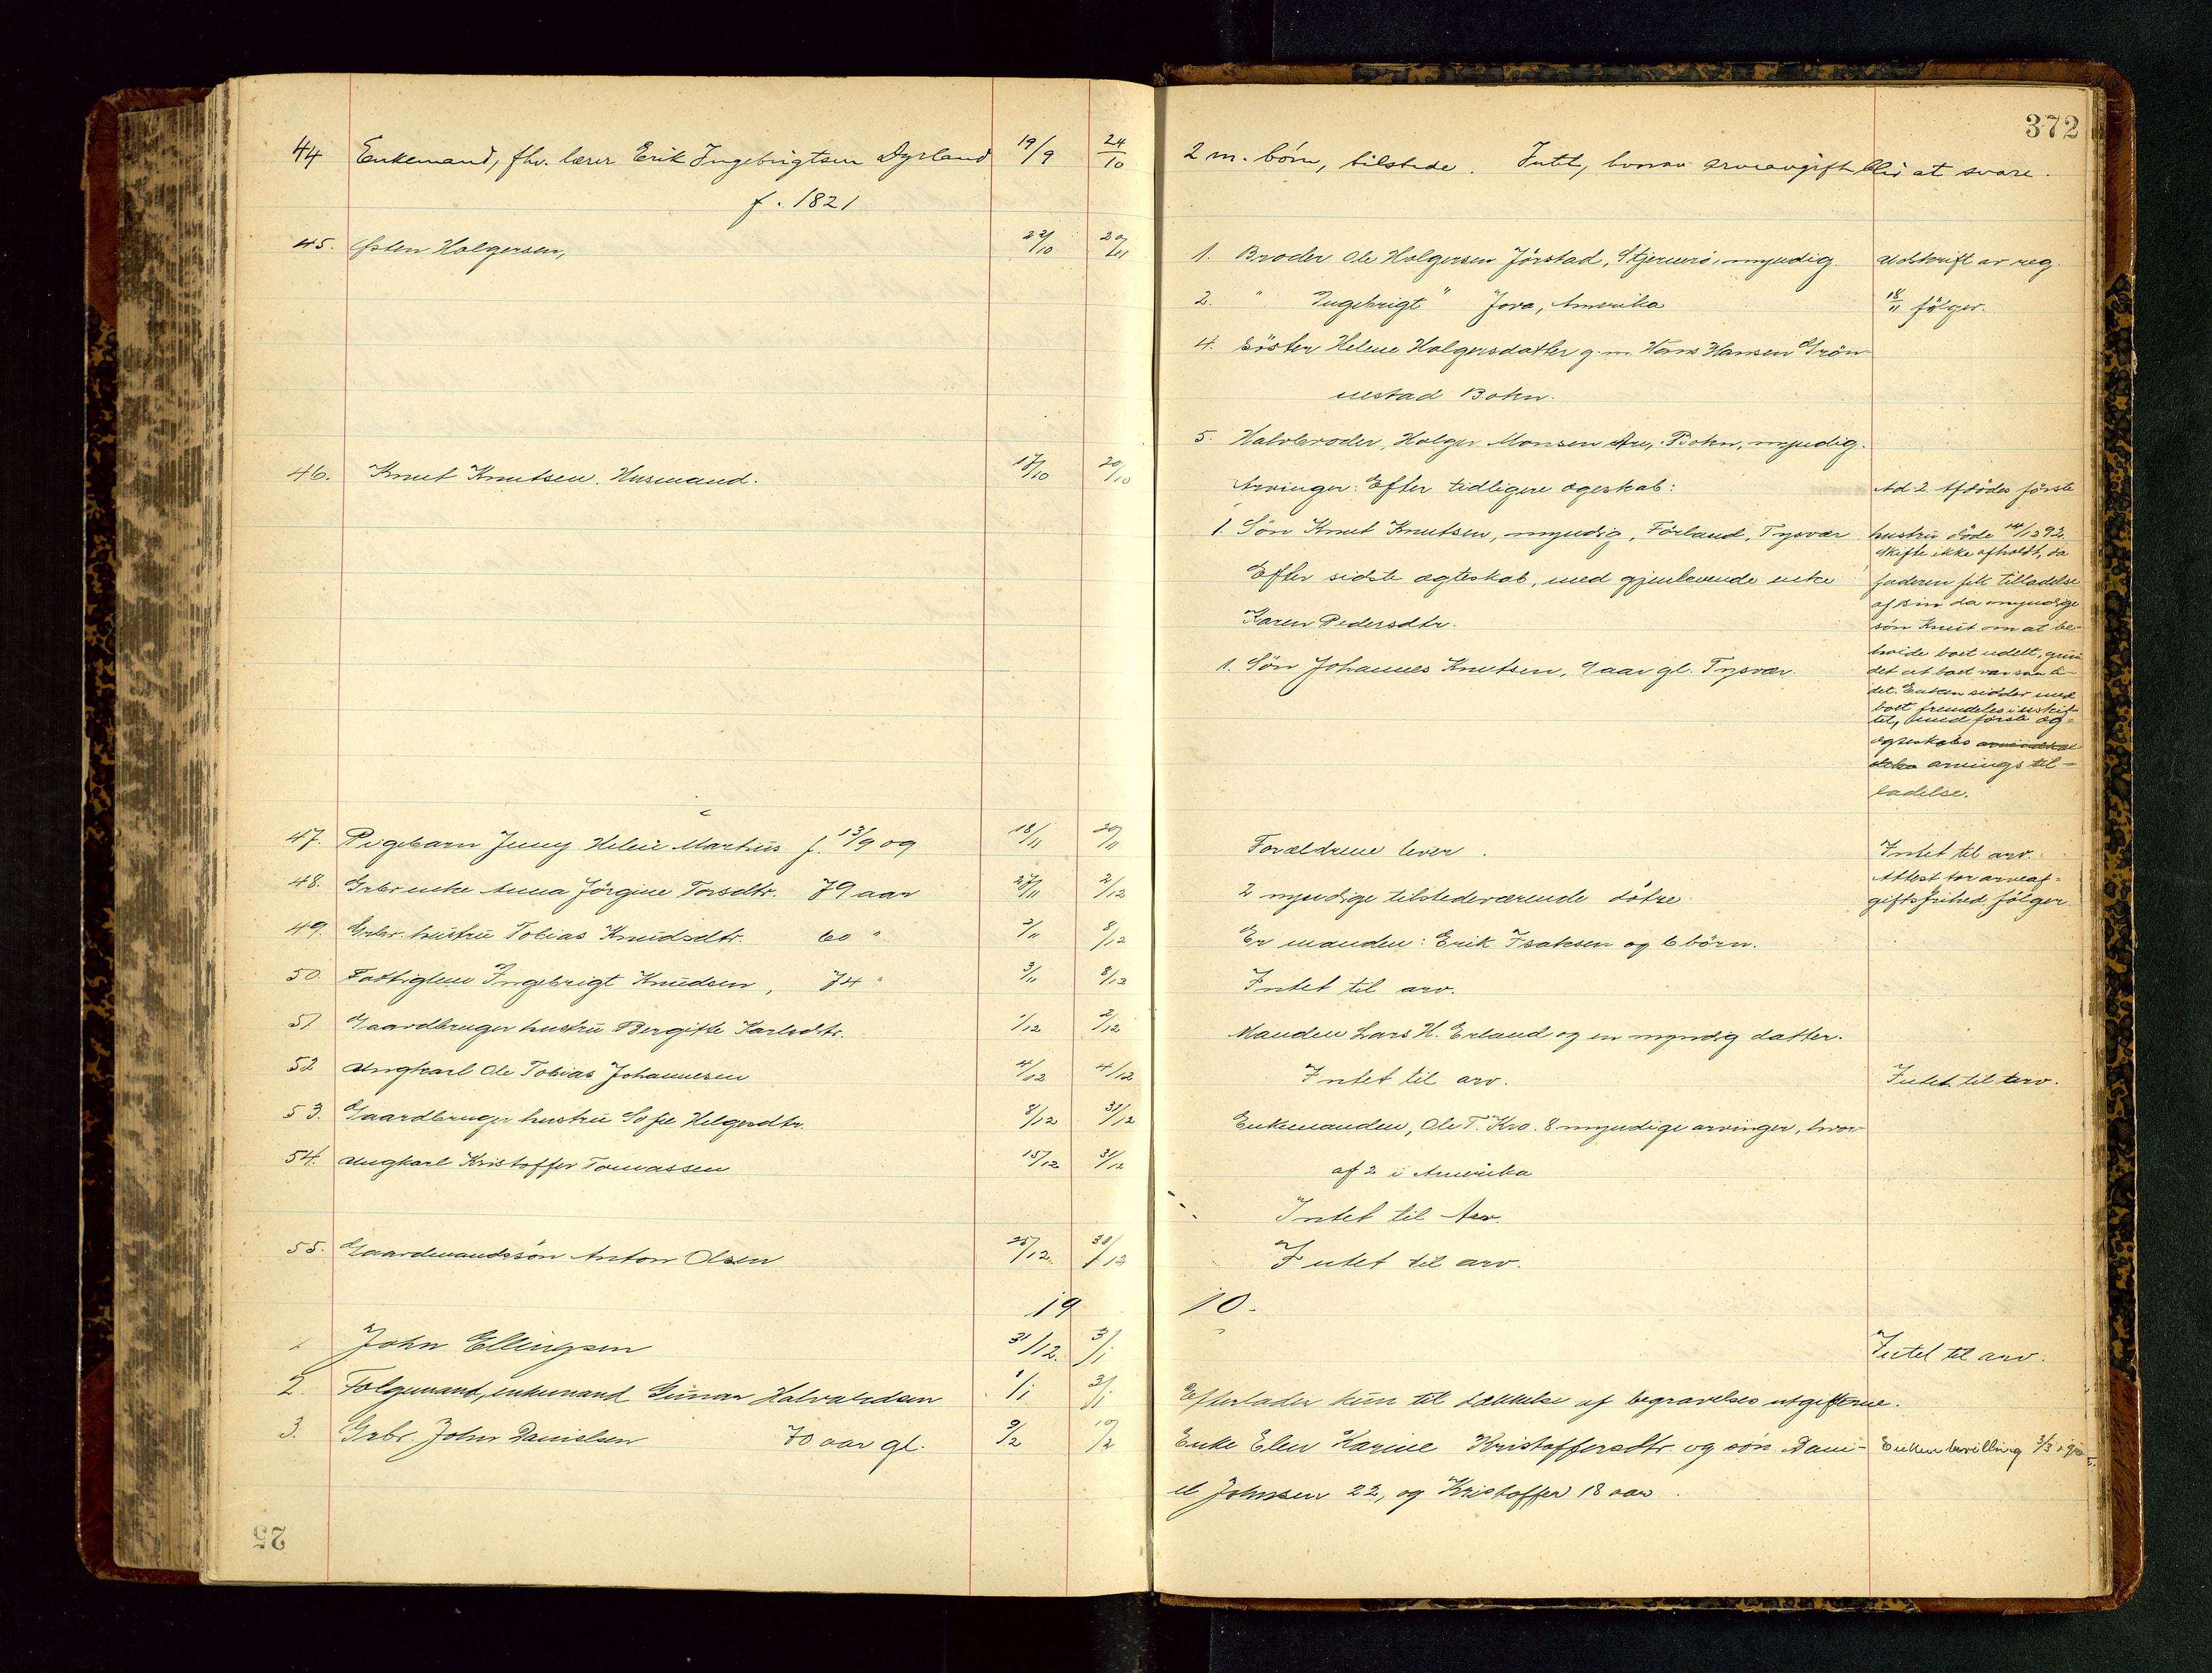 372
44 Enkemand, fhv. lærer Erik Ingebrigtsen Dyrland 19/9 24/10 2 m. börn, tilstede. Intet, hvorav arveavgift blir at svare.
f. 1821
45. Østen Holgersen, 22/10 20/11 1. Broder Ole Holgersen Jörstad, Stjernerö, myndig. Utskrift av reg.
2. " Ingebrigt " Jova, Amerika 18/11 fölger.
4. Söster Helene Holgersdatter g. m. Hans Hansen Grön-
nestad Bokn.
5. Halvbroder, Holger Monsen Are, Bokn, myndig.
46. Knut Knutsen. Husmand. 17/10 20/10 Arvinger: Efter tidligere ægeskab: Ad 2 Afdödes förste
1. Sön Knut Knutsen, myndig, Förland, Tysvær hustru döde 14/12 92.
Skifte ikke afholdt, da
Efter sidste ægteskab, med gjenlevende enke faderen fik tilladelse
af sin da myndige
Karen Pedersdtr. sön Knut om at be-
holde boet udelt, grun
1. Sön Johannes Knutsen, 9 aar gl. Tysvær. det at boet var saa li-
det. Enken sidder med
boet fremdeles i uskif-
tet, med förste æg-
ægteskabs
arvings til-
ladelse.
47. Pigebarn Jenny Helene Martins f. 13/9 09 18/11 20/11 Forældrene lever. Intet til arv.
48. Grbr enke Anna Jörgine Torsdtr. 79 aar 27/11 2/12 2 myndige tilstedeværende dötre. Attest for arveaf-
giftsfrihed fölger.
49. Grbr. hustru Tobias Knudsdtr. 60 " 2/11 8/12 Er manden: Erik Isaksen og 6 börn.
50. Fattiglem Ingebrigt Knudsen, 74 " 3/11 8/12 Intet til arv.
51. Gaardbruger hustru Bergitte Karlsdtr. 1/12 2/12 Manden Lars H. Erland og en myndig datter.
52 Ungkarl Ole Tobias Johannesen 4/12 4/12 Intet til arv. Intet til arv.
53. Gaardbruger hustru Sofie Helgesdtr. 8/12 31/12 Enkemanden, Ole T. Kro. 8 myndige arvinger, hvor
af 2 i Amerika
54. Ungkarl Kristoffer Tomassen 15/12 31/12
Intet til Arv.
55. Gaardmandssön Anton Olsen 25/12 31/12 Intet til arv.
19 10.
1 John Ellingsen 31/12. 3/1 Intet til arv.
2. Folgemand, enkemand Gunnar Halvardsen 1/1 3/1 Efterlader kun til dækkelse af begravelses utgifterne.
3. Grbr. John Danielsen 70 aar gl. 9/2 10/2 Enke Elen Karine Kristoffersdtr. og sön Dani- Enken bevilling 3/3
el Johnsen 22, og Kristoffer 18 aar.
25